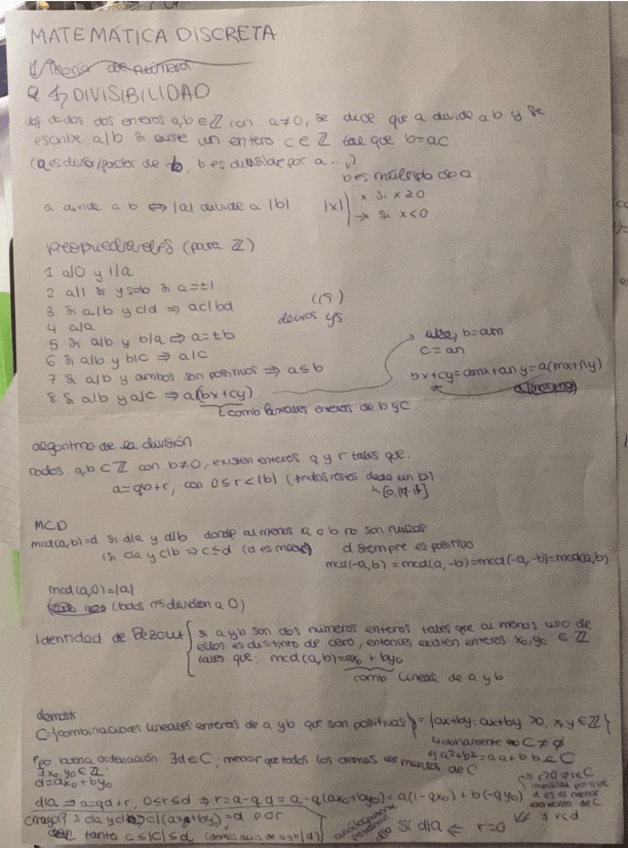 MATEMÁTICA DISCRETA
DIVISIBILIDAD
dados dos enteros a,b ∈ Z con a≠0, se dice que a divide a b y se
escribe a|b si existe un entero c ∈ Z tal que b=ac
(a es divisor/factor de b, b es divisible por a ...)
b es múltiplo de a
a divide a b ⇔ |a| divide a |b| |x| x si x≥0
-x si x<0
propiedades (para Z)
1 a|0 y 1|a
2 a|1 si y solo si a=±1
3 si a|b y c|d ⇒ ac|bd
4 a|a
5 si a|b y b|a ⇒ a=±b
6 si a|b y b|c ⇒ a|c
7 si a|b y ambos son positivos ⇒ a≤b
8. si a|b y a|c ⇒ a|(bx+cy)
b=am
c=an
bx+cy=amx+any=a(mx+ny)
comb lineales enteras de b y c
algoritmo de la división
dados a,b ⊂ Z con b≠0, existen enteros q y r tales que:
a=qb+r, con 0≤r<|b|
MCD
mcd(a,b)=d si d|a y d|b donde al menos a o b no son nulos
si c|a y c|b ⇒ c≤d (d es mayor) d siempre es positivo
mcd(-a,b) = mcd(a,-b)=mcd(-a,-b)=mcd(a,b)
mcd(a,0)=|a|
(todos nos dividen a 0)
Identidad de Bezout si a y b son dos números enteros tales que al menos uno de
ellos es distinto de cero, entonces existen enteros x₀,y₀ ∈ Z
tales que: mcd(a,b)=ax₀ + by₀
comb lineal de a y b
demostr
C={combinaciones lineales enteras de a y b que son positivas}={ax+by: ax+by >0, x,y ∈ Z}
C ≠ ∅
por buena ordenación: ∃d∈C, menor que todos los demás elementos de C
∃x₀,y₀∈Z:
d=ax₀+by₀
d|a ⇒ a=qd+r, 0≤r<d ⇒ r=a-qd=a-q(ax₀+by₀)=a(1-qx₀)+b(-qy₀)
si r>0 ⇒ r∈C
imposible porque
d es el menor
elemento de C
y r<d
si c|a y c|b ⇒ c|(ax₀+by₀)=d por
tanto c≤|c|≤d
sí d|a ⇐ r=0